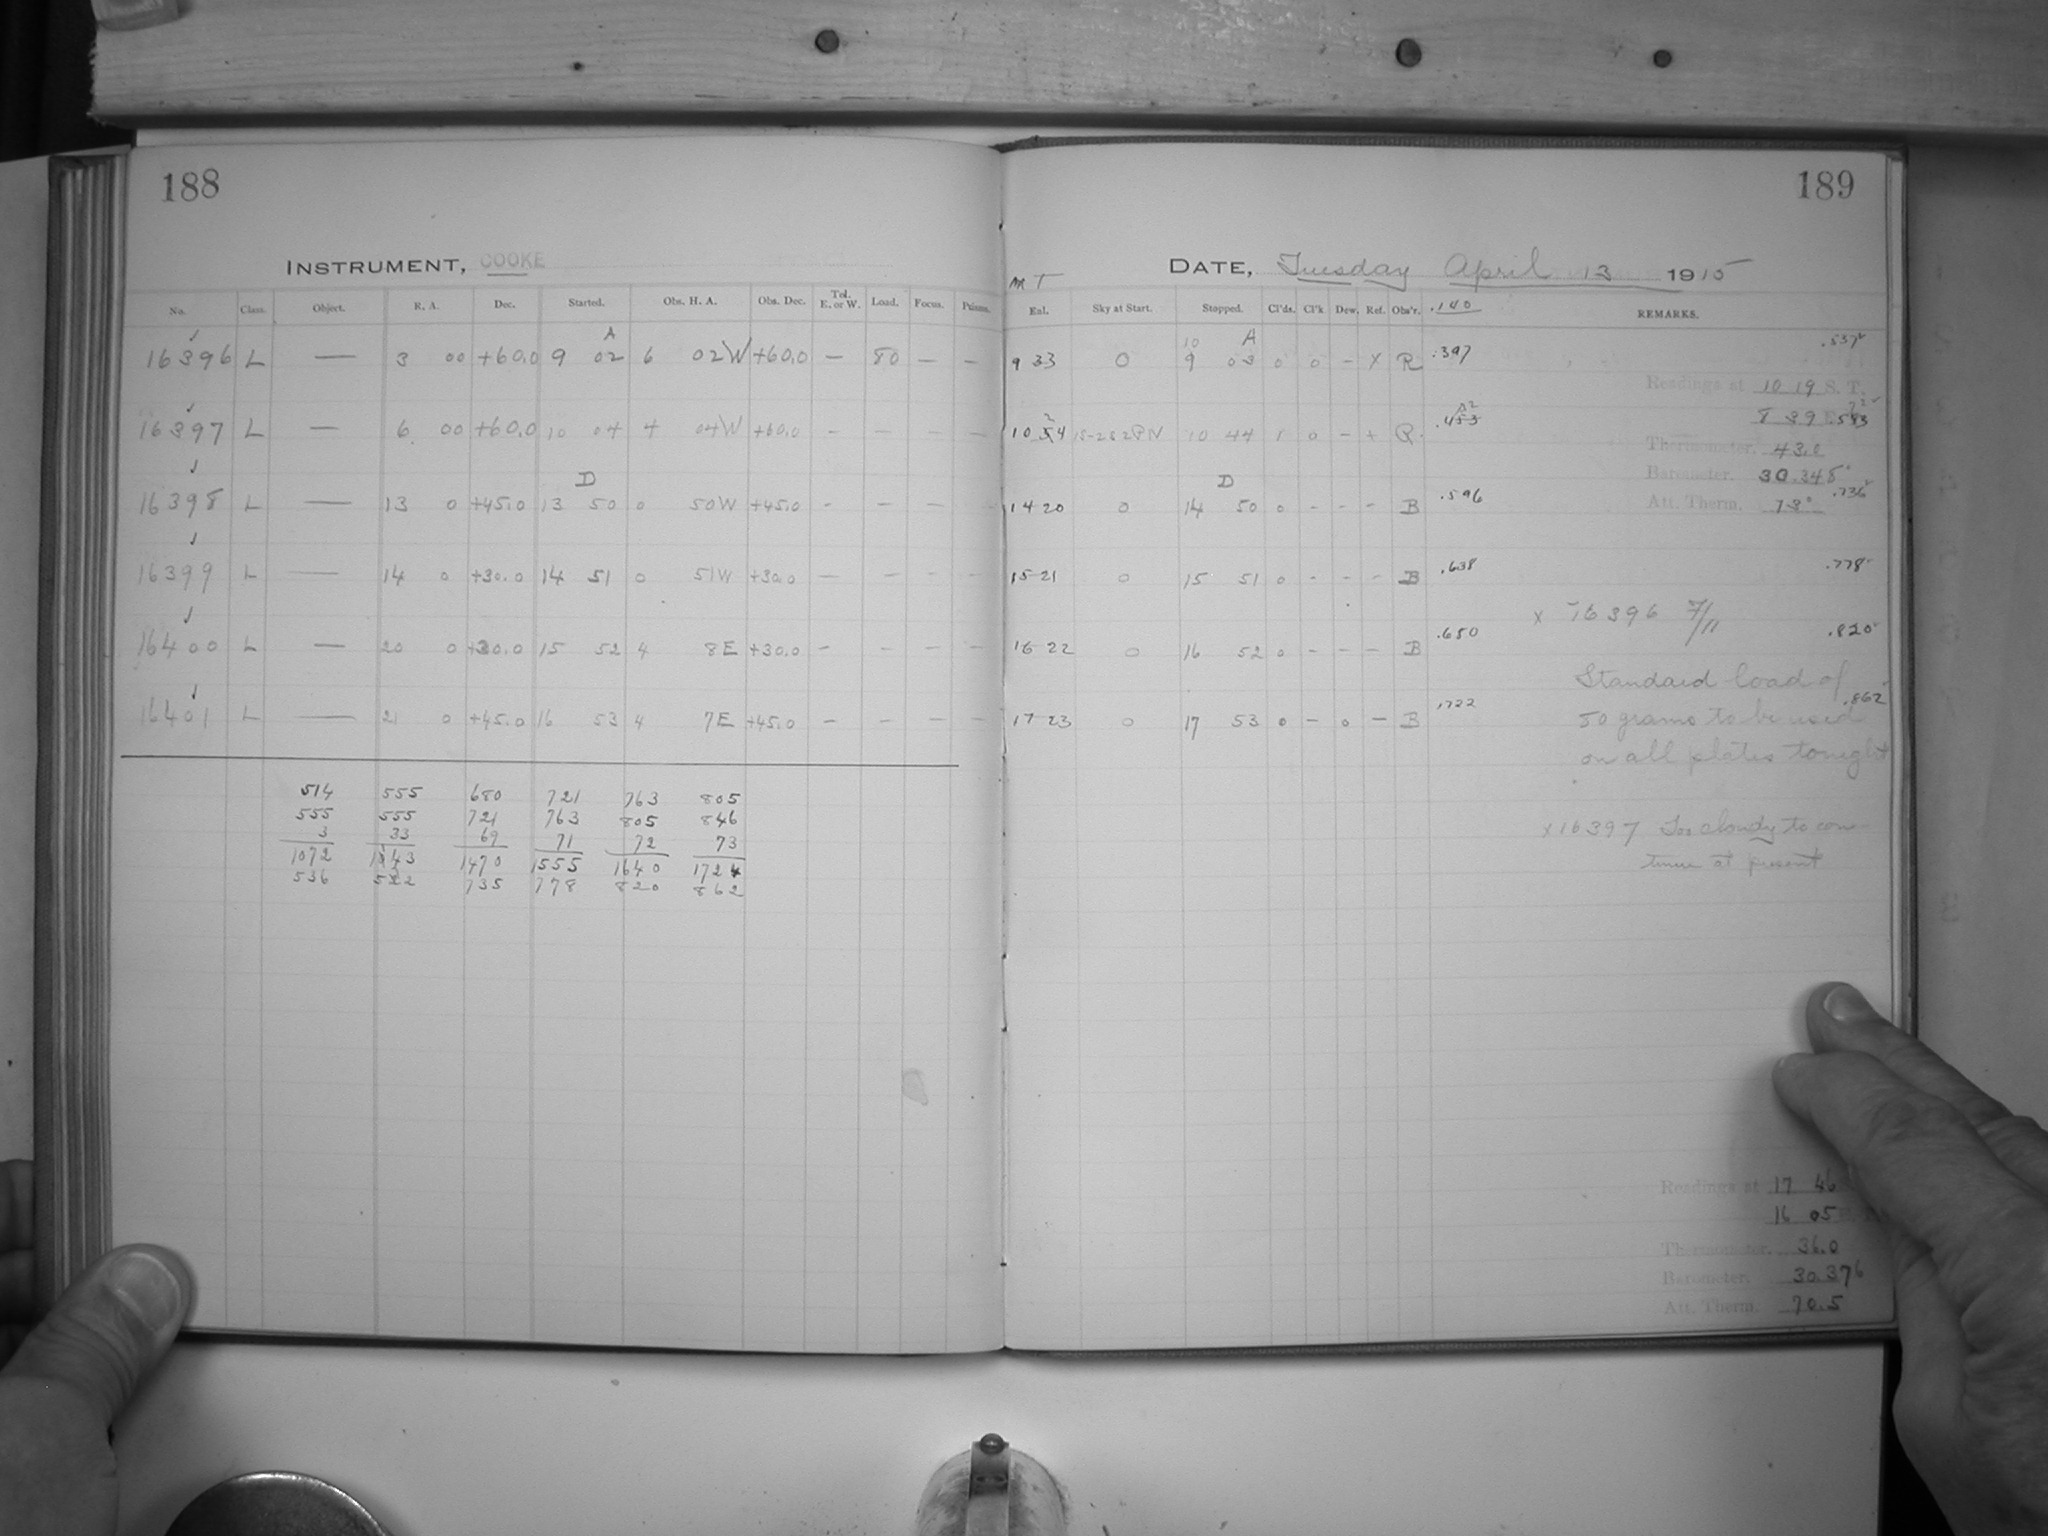 188
INSTRUMENT, COOKE
No. Class. Object. R. A. Dec. Started. Obs. H. A. Obs. Dec. Tel. E. or W. Load. Focus. Prisms.
A
16396 L — 3 00 +60.0 9 02 6 02W +60.0 — 80 — —
16397 L — 6 00 +60.0 10 04 4 04W +60.0 - - - -
D
16398 L — 13 0 +45.0 13 50 0 50W +45.0 - - - -
16399 L — 14 0 +30.0 14 51 0 51W +30.0 - - - -
16400 L — 20 0 +30.0 15 52 4 8E +30.0 - - - -
16401 L — 21 0 +45.0 16 53 4 7E +45.0 - - - -
514 555 680 721 763 805
555 555 721 763 805 846
3 33 69 71 72 73
1072 1470 1555 1640 1724
536 735 778 820 862
189
DATE, Tuesday April 13 1915
MT
Eal. Sky at Start. Stopped. Cl'ds. Cl'k Dew. Ref. Obs'r. .140 REMARKS.
10 A
9 33 0 9 03 0 0 - X R .397
.537
Readings at 10 19 S. T.
8 39
10 44 1 0 - + R
Thermometer. 43.0
Barometer. 30.348
D
14 20 0 14 50 0 - - - B .596
.736
Att. Therm. 73°
15 21 0 15 51 0 - - - B .638
.778
x 16396 7/11
16 22 0 16 52 0 - - - B .680
.820
Standard load of
.862
17 23 0 17 53 0 - 0 - B .722
50 grams to be used
on all plates tonight
x 16397 Too cloudy to con-
tinue at present
Readings at 17 46
16 05
Thermometer. 36.0
Barometer. 30.376
Att. Therm. 70.5